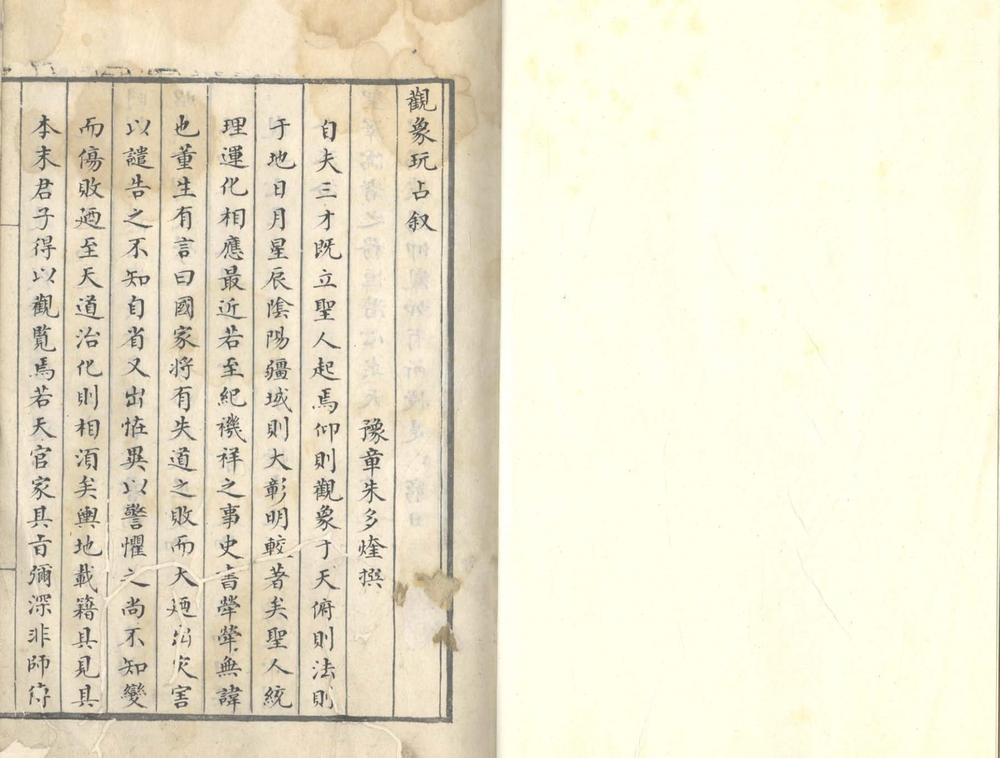 觀象玩占叙
豫章朱多煃撰
自夫三才既立聖人起焉仰則觀象于天俯則法則
于地日月星辰陰陽疆域則大彰明較著矣聖人統
理運化相應最近若至紀禨祥之事史書犖犖無諱
也董生有言曰國家將有失道之敗而天廼出灾害
以譴告之不知自省又出恠異以警懼之尚不知變
而傷敗廼至天道治化則相湏矣輿地載籍具見具
本末君子得以觀覽焉若天官家具旨彌深非師傳